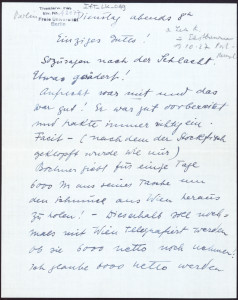 Dienstag abends 8h
Einziges Gutes!
Sozusagen nach der Schlacht.
Etwas geändert!
Aufrecht war mit und das
war gut! Er war gut vorbereitet
und hakte immer richtig ein.
Facit – (nachdem der Stockfisch
geklopft wurde wie nie)
gibt für einige Tage
6000 M aus seiner Tasche um
den Schmuck aus Wien heraus
zu holen! – Dieserhalb soll noch-
mals mit Wien telegrafiert werden
ob sie 6000 netto noch nehmen!
Ich glaube 6000 netto werden